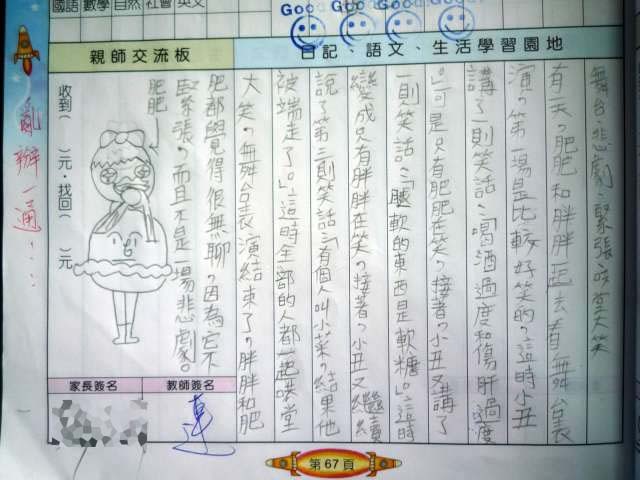 國語 數學 自然 社會 英文
Good Good Good Good Good
日記、語文、生活學習園地
舞台悲劇:緊張哄堂大笑
有一天,肥肥和胖胖一起去看舞台表
演,第一場是比較好笑的,這時小丑
講了一則笑話:「喝酒過度和傷肝過度
。」可是只有肥肥在笑,接著,小丑又講了
一則笑話:「腿軟的東西是軟糖。」這時
變成只有胖胖在笑,接著,小丑又繼續
說了第三則笑話:「有個人叫小菜,結果他
被端走了。」這時全部的人都一起哄堂
大笑,舞台表演結束了,胖胖和肥
肥都覺得很無聊,因為它不
緊張,而且不是一場悲劇。
親師交流板
肥肥
收到( )元,找回( )元
亂辦一通...
家長簽名
教師簽名
蓮
第67頁